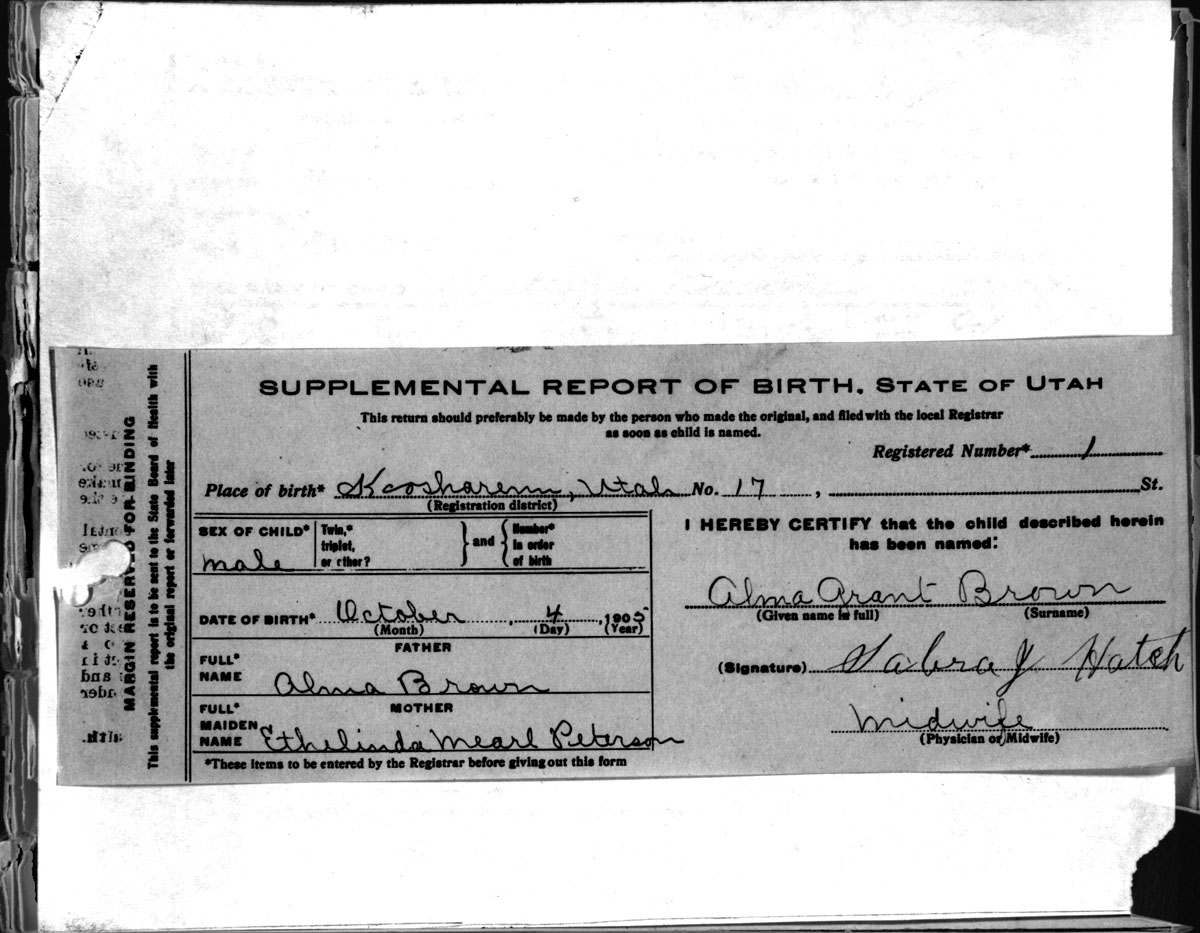 SUPPLEMENTAL REPORT OF BIRTH. STATE OF UTAH
This return should preferably be made by the person who made the original, and filed with the local Registrar
as soon as child is named.
Registered Number* 1
Place of birth* Koosharem, Utah No. 17 , St.
(Registration district)
SEX OF CHILD* male
Twin,* triplet, or other? } and { Number* in order of birth
DATE OF BIRTH* October , 4 , 1905
(Month) (Day) (Year)
FATHER
FULL* NAME Alma Brown
MOTHER
FULL* MAIDEN NAME Ethelinda Mearl Peterson
*These items to be entered by the Registrar before giving out this form
I HEREBY CERTIFY that the child described herein
has been named:
Alma Grant Brown
(Given name in full) (Surname)
(Signature) Sabra J Hatch
Midwife
(Physician or Midwife)
MARGIN RESERVED FOR BINDING
This supplemental report is to be sent to the State Board of Health with
the original report or forwarded later